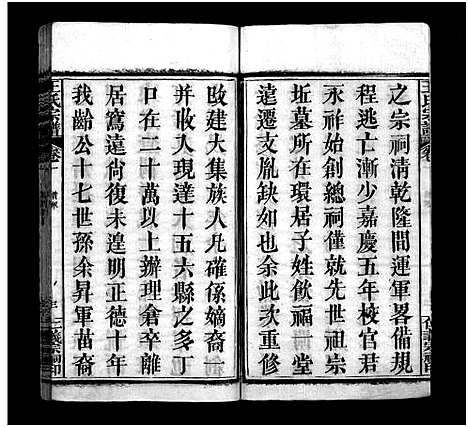 之宗祠清乾隆間運軍畧備規
程逃亡漸少嘉慶五年校官君
永祥始創總祠僅就先世祖宗
坵墓所在環居子姓飲福一堂
遠遷支胤缺如也以此
改建大集族人凡確係嫡裔一
并收入現達十五六縣之多丁
口在二十萬以上辦理倉卒離
居窩遠尙復未遑明正德十年
我齡公十七世孫余昇軍苗裔
王氏宗譜
卷